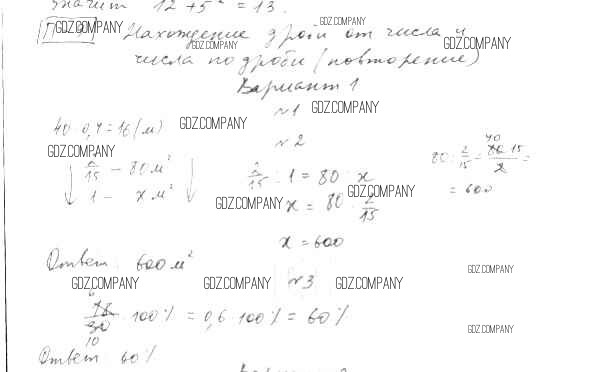 Значит 12 + 5² = 13.
GDZ.COMPANY
GDZ.COMPANY
Нахождение дроби от числа и
GDZ.COMPANY
GDZ.COMPANY
числа по дроби (повторение)
Вариант 1
№1
GDZ.COMPANY
40 · 0,4 = 16 (м)
GDZ.COMPANY
№2
GDZ.COMPANY
2/15 – 80 м²
1 – x м²
2/15 : 1 = 80 : x
GDZ.COMPANY
GDZ.COMPANY
x = 80 : 2/15
x = 600
80 : 2/15 = 80 · 15 / 2 =
40
= 600
Ответ: 600 м²
GDZ.COMPANY
GDZ.COMPANY
№3
GDZ.COMPANY
GDZ.COMPANY
18/30 · 100% = 0,6 · 100% = 60%
6
10
GDZ.COMPANY
Ответ: 60%